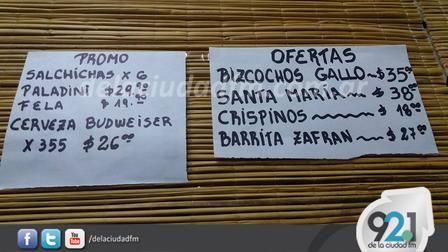 PROMO
SALCHICHAS X 6
PALADINI $29.90
FELA $19.00
CERVEZA BUDWEISER
X 355 $26.00
OFERTAS
BIZCOCHOS GALLO~$35.00
SANTA MARIA~$38.00
CRISPINOS $18.00
BARRITA ZAFRAN~$27.00
delaciudadfm.com.ar
f t You Tube /delaciudadfm
92.1
de la ciudad fm